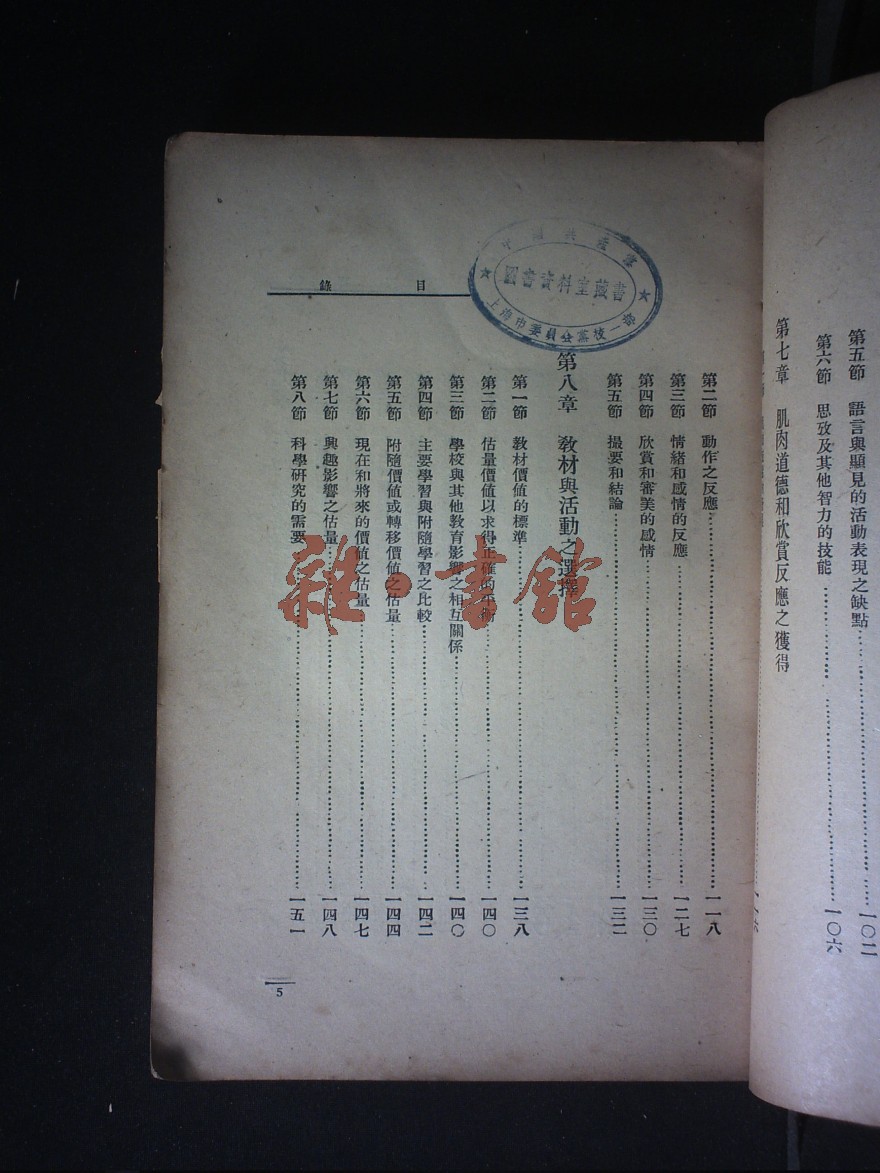 第五節 語言與顯見的活動表現之缺點 一〇二
第六節 思考及其他智力的技能 一〇六
第七章 肌肉道德和欣賞反應之獲得
目錄
第二節 動作之反應 一一八
第三節 情緒和感情的反應 一二七
第四節 欣賞和審美的感情 一三〇
第五節 撮要和結論 一三二
第八章 教材與活動之選擇
第一節 教材價値的標準 一三八
第二節 估量價値以求得正確的平衡 一四〇
第三節 學校與其他教育影響之相互關係 一四〇
第四節 主要學習與附隨學習之比較 一四二
第五節 附隨價値或轉移價値之估量 一四四
第六節 現在和將來的價値之估量 一四七
第七節 興趣影響之估量 一四八
第八節 科學研究的需要 一五一
5
中國共產黨
圖書資料室藏書
上海市委員會黨校一部
雜·書館